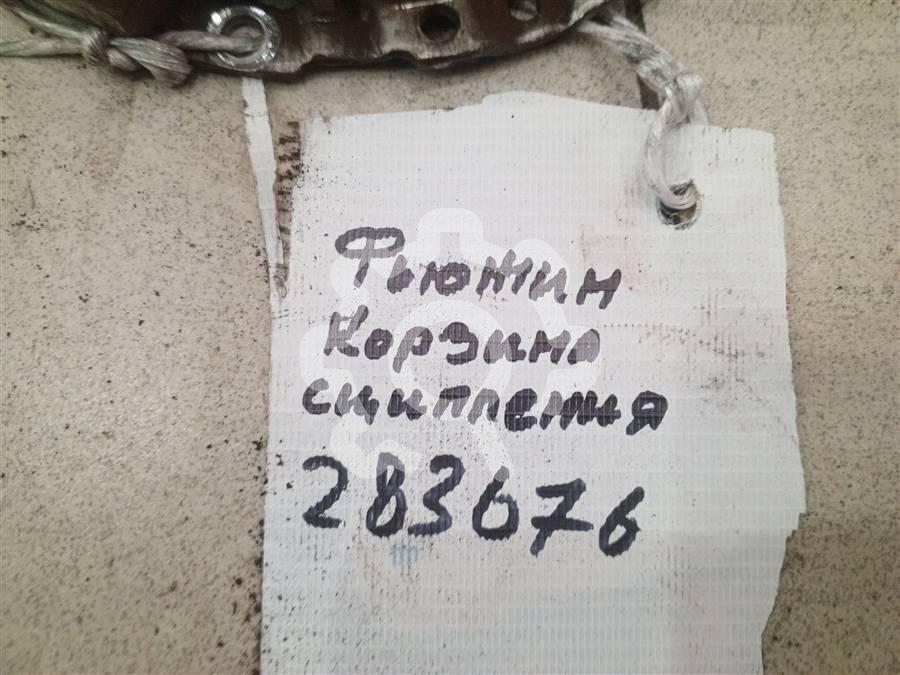 Фьюжин
Корзина
сципления
283676